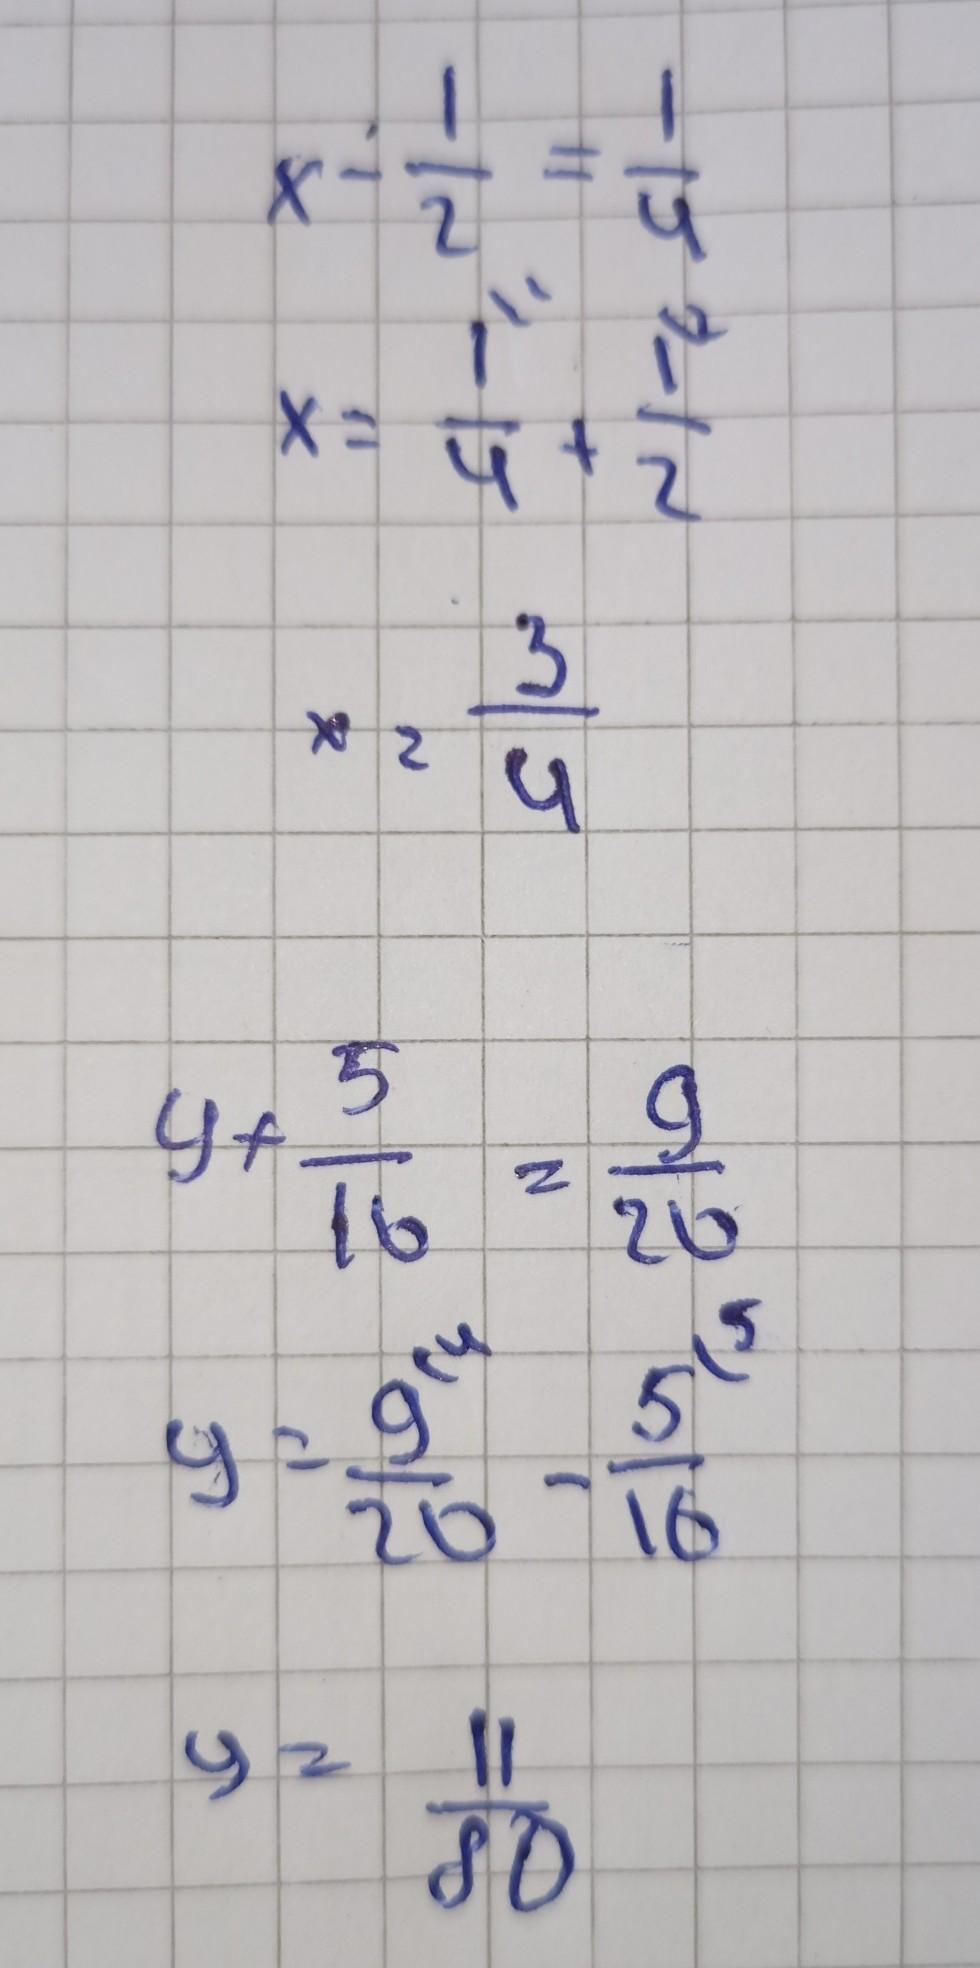 x - 1/2 = 1/4
x = 1/4 + 1/2
x = 3/4
y + 5/16 = 9/20
y = 9/20 - 5/16
y = 11/80